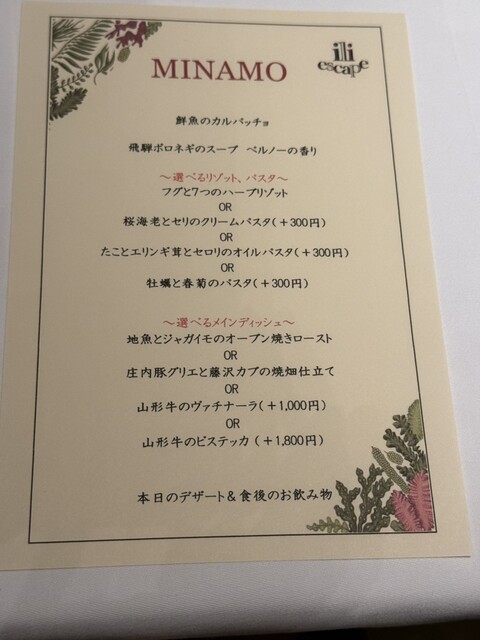 MINAMO
ili
escape
鮮魚のカルパッチョ
飛騨ボロネギのスープ ペルノーの香り
～選べるリゾット、パスタ～
フグと7つのハーブリゾット
OR
桜海老とセリのクリームパスタ(＋300円)
OR
たことエリンギ茸とセロリのオイルパスタ(＋300円)
OR
牡蠣と春菊のパスタ(＋300円)
～選べるメインディッシュ～
地魚とジャガイモのオーブン焼きロースト
OR
庄内豚グリエと藤沢カブの焼畑仕立て
OR
山形牛のヴァチナーラ(＋1,000円)
OR
山形牛のビステッカ (＋1,800円)
本日のデザート＆食後のお飲み物